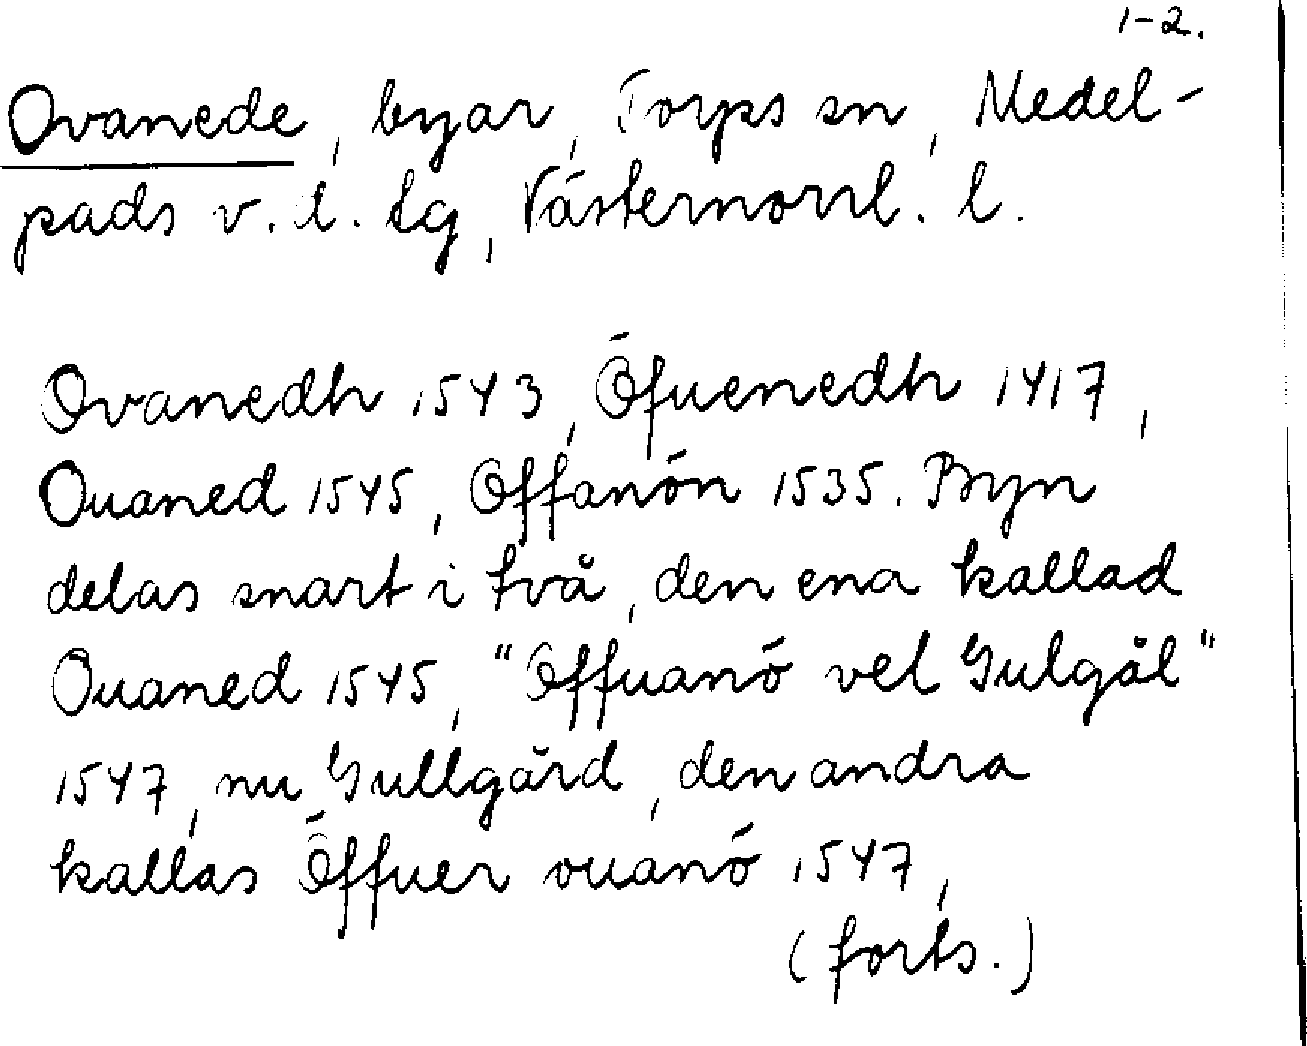 1-2.
Ovanede, byar, Torps sn, Medel-
pads v. d. tg, Västernorrl. l.
Ovanedh 1543, Öfuenedh 1417,
Ouaned 1545, Offanön 1535. Byn
delas snart i två, den ena kallad
Ouaned 1545, "Offuanö vel Gulgål"
1547, nu Gullgård, den andra
kallas Öffuer ouanö 1547,
(forts.)